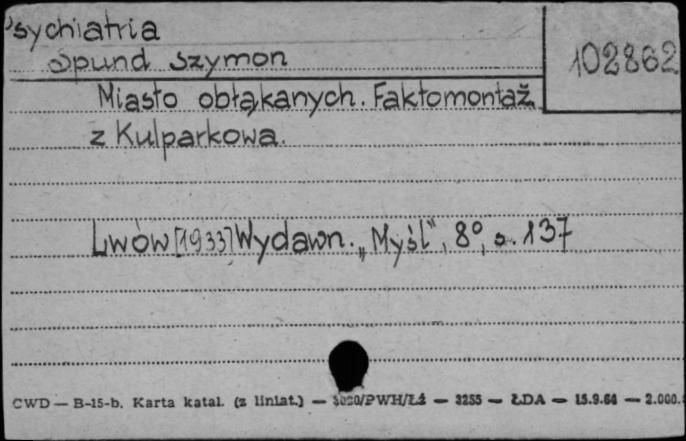 Psychiatria
Spund Szymon
102862
Miasto obłąkanych. Faktomontaż
z Kulparkowa.
Lwów [1933] Wydawn. „Myśl", 8°, s. 137
CWD — B-15-b. Karta katal. (z liniat.) — PWH/Łź — 3255 — ŁDA — 15.9.64 — 2.000.